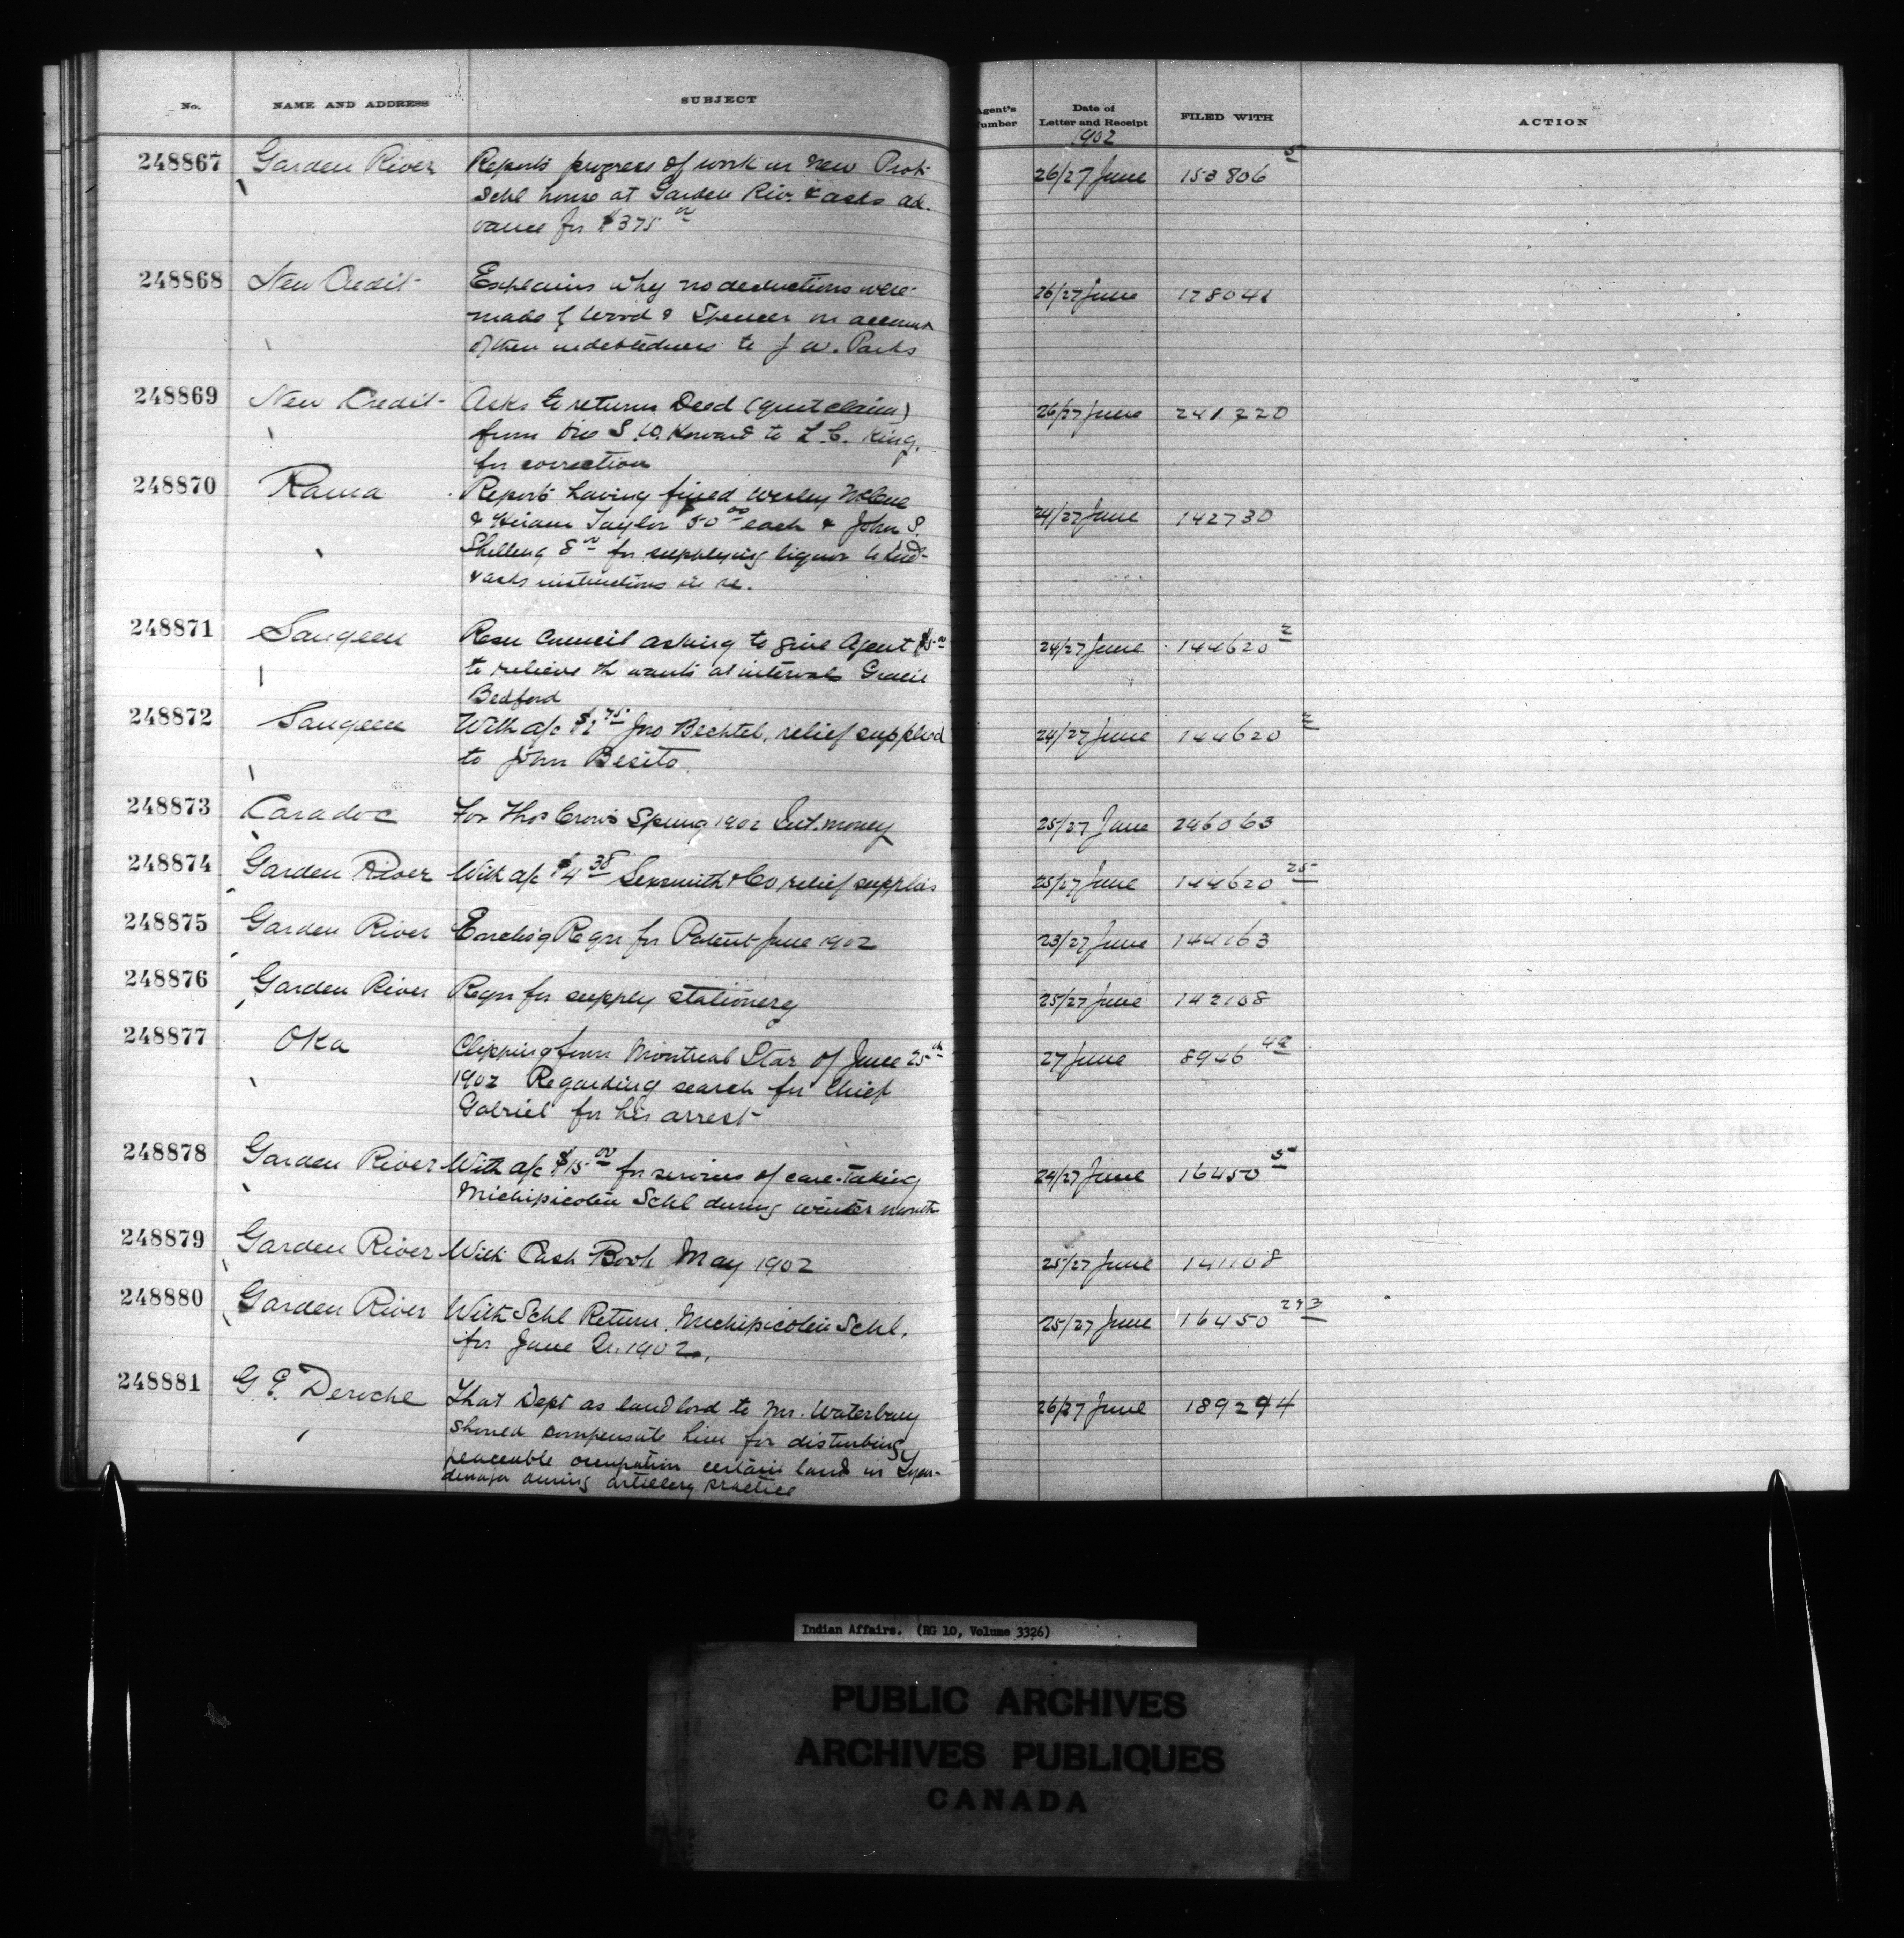 No. NAME AND ADDRESS SUBJECT Agent's Number Date of Letter and Receipt FILED WITH ACTION
1902
248867 Garden River Reports progress of work on New Prot. 26/27 June 153806 5
Schl house at Garden Riv. & asks ad-
vance for $375 00
248868 New Credit Explains why no deductions were 26/27 June 178041
made f Wood & Spencer on account
of their indebtedness to J W. Parks
248869 New Credit Asks to return Deed (quit claim) 26/27 June 241220
from S. W. Howard to L. C. King,
for correction
248870 Rama Reports having fined Wesley McCue 24/27 June 142730
& Hiram Taylor $50 00 each & John S.
8 00 for supplying liquor to Inds
& asks instructions in re.
248871 Saugeen Resn Council asking to give Agent $5 00 24/27 June 144620 2
to relieve the wants at intervals Gracie
Bedford
248872 Saugeen With a/c $1 75 Jno Bechtel, relief supplied 24/27 June 144620 2
to John Besito.
248873 Caradoc For Thos Crow's Spring 1902 Int. money 25/27 June 246063
248874 Garden River With a/c $4 38 Sexsmith & Co relief supplies 25/27 June 144620 25
248875 Garden River Enclos'g Reqn for Patent June 1902 23/27 June 144163
248876 Garden River Reqn for supply stationery 25/27 June 142168
248877 Oka Clipping from Montreal Star of June 25th 27 June 8946
1902 Regarding search for Chief
Gabriel for his arrest
248878 Garden River With a/c $15 00 for services of care-taking 24/27 June 16450 5
Michipicoten Schl during winter month
248879 Garden River With Cash Book May 1902 25/27 June 141108
248880 Garden River With Schl Return. Michipicoten Schl. 25/27 June 16450 243
for June Qr. 1902.
248881 G E. Deroche That Dept as landlord to Mr. Waterbury 26/27 June 189294
should compensate him for disturbing
peaceable occupation certain land in Tyen-
dinaga during artillery practice
Indian Affairs. (RG 10, Volume 3326)
PUBLIC ARCHIVES
ARCHIVES PUBLIQUES
CANADA